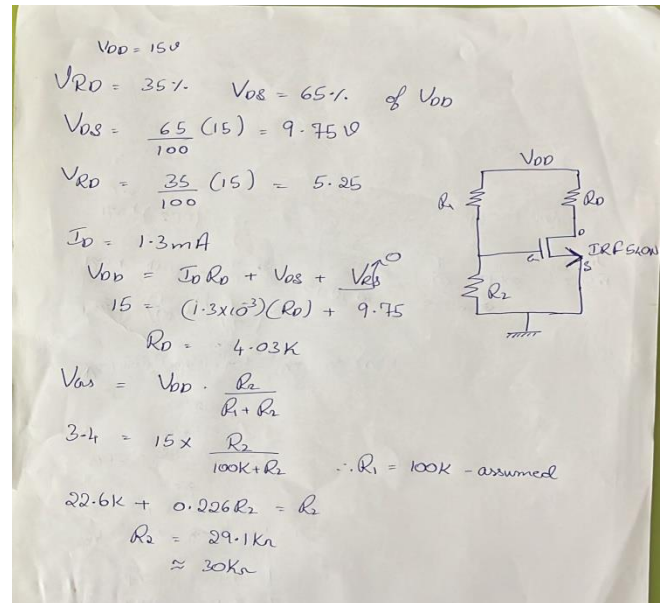 VDD = 15v
VRD = 35% VDS = 65% of VDD
VDS = 65/100 (15) = 9.75 v
VRD = 35/100 (15) = 5.25
ID = 1.3mA
VDD = IDRD + VDS + VRS 0
15 = (1.3x10⁻³)(RD) + 9.75
RD = 4.03K
VGS = VDD . R2/R1+R2
3.4 = 15 x R2/100K+R2 ∴ R1 = 100K - assumed
22.6K + 0.226R2 = R2
R2 = 29.1KΩ
≈ 30KΩ
VDD
R1
RD
D
G
IRF540N
S
R2